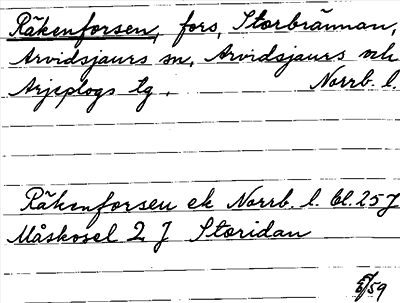 Räkenforsen, fors, Storbrännan,
Arvidsjaurs sn, Arvidsjaurs och
Arjeplogs tg. Norrb. l.
Räkenforsen ek Norrb. l. bl. 25 J
Måskosel 2 J Storidan
/59